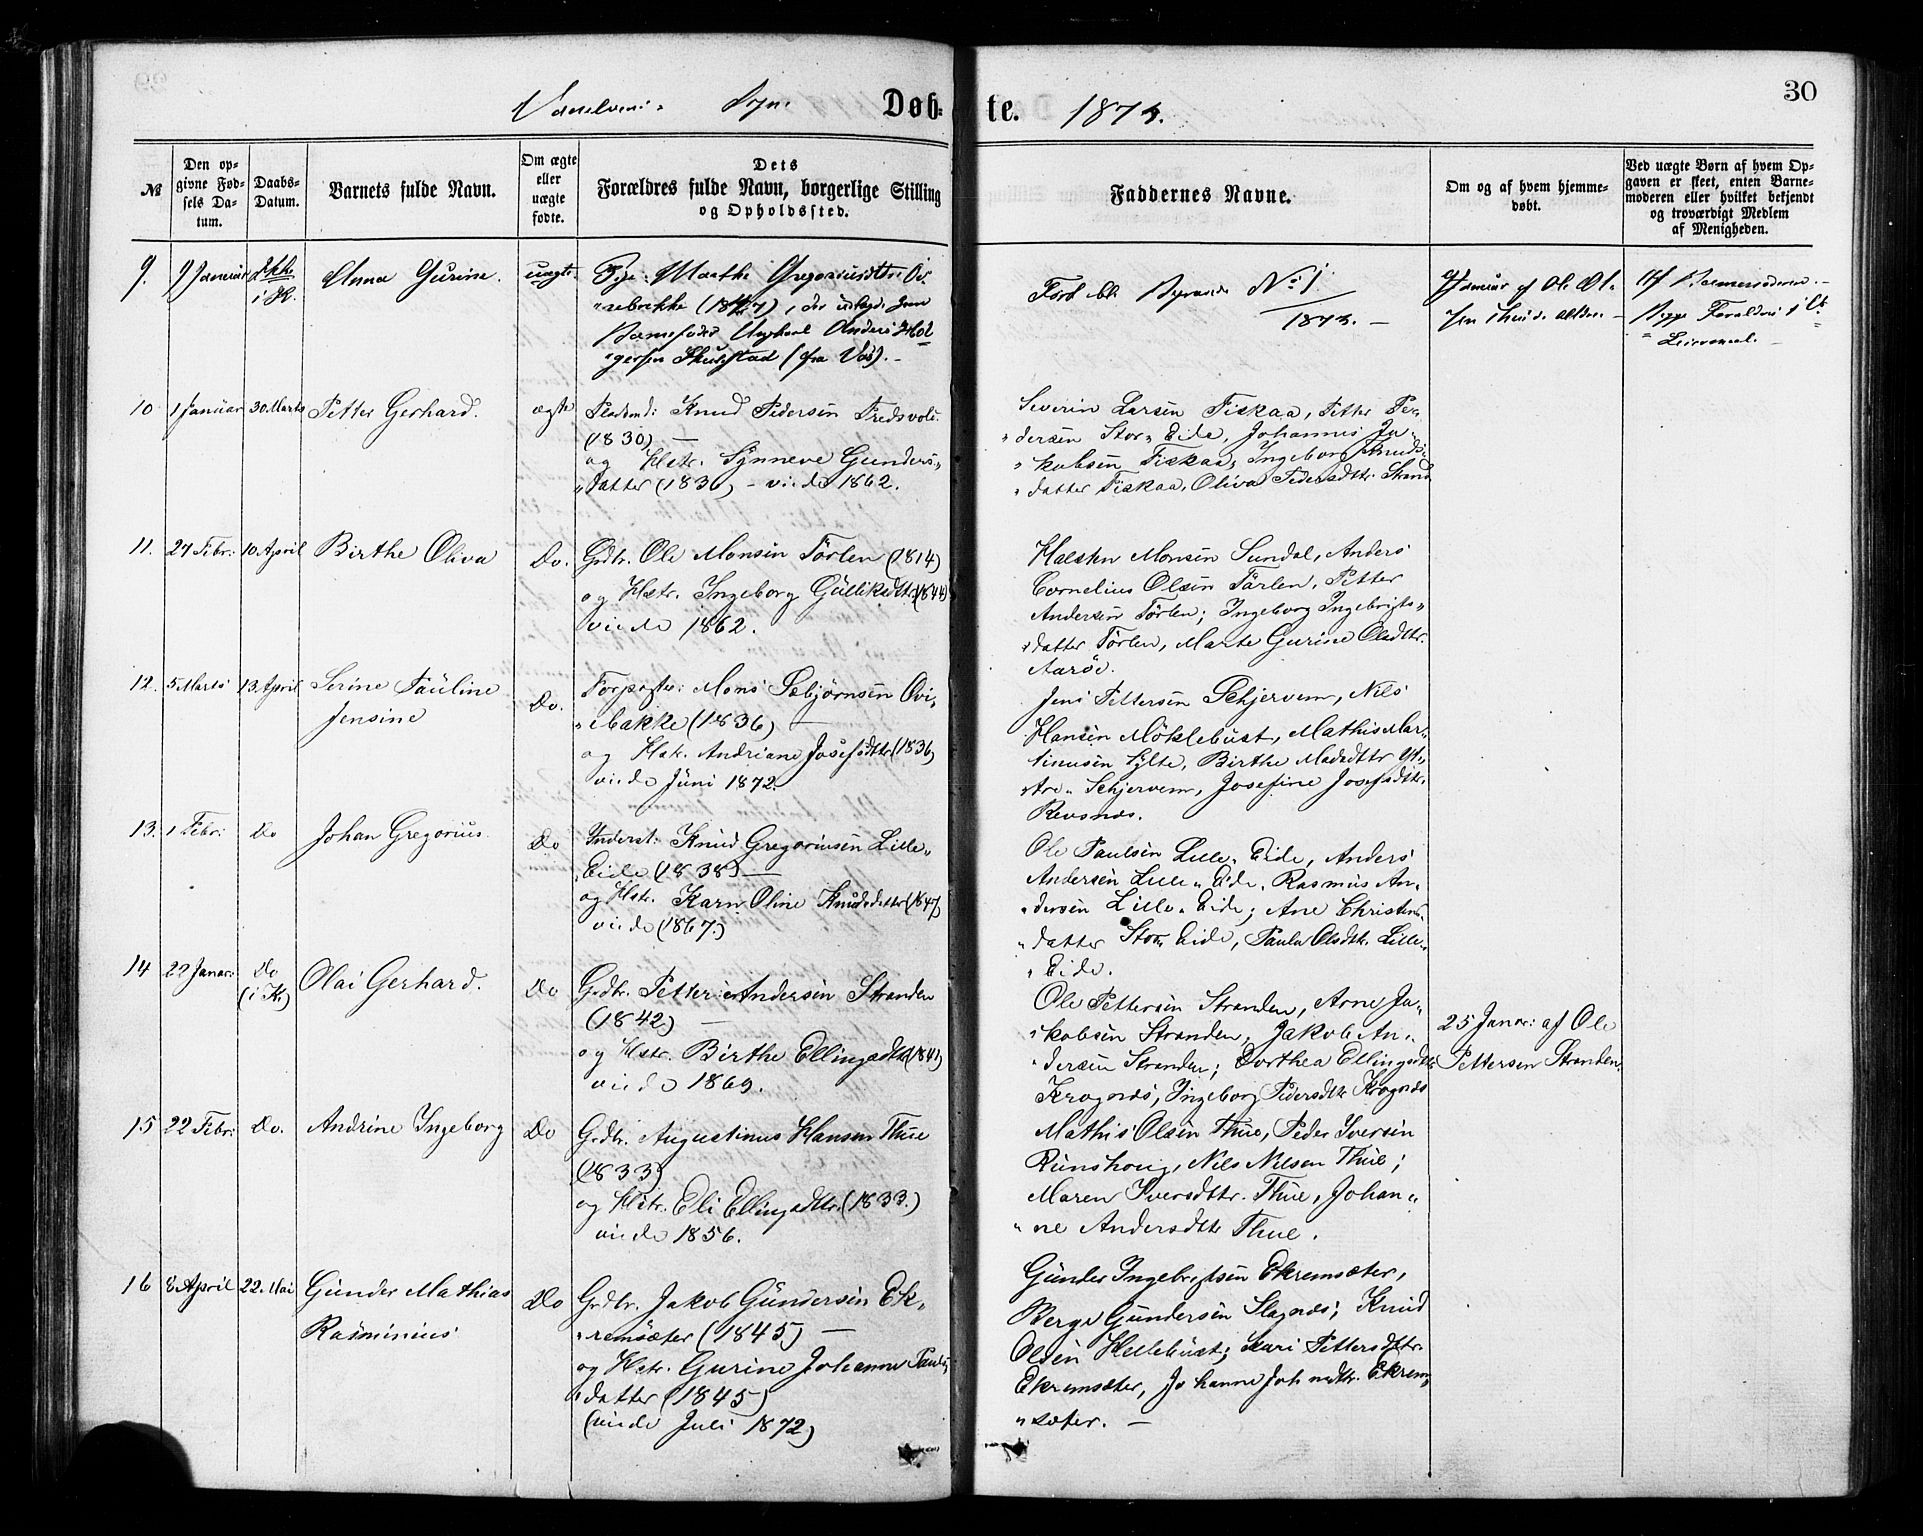 30
Vanelvens Sogn. Døb=te. 1873.
№
Den op=
givne Fød=
sels Da=
tum.
Daabs=
Datum.
Barnets fulde Navn.
Om ægte
eller
uægte
fødte.
Dets
Forældres fulde Navn, borgerlige Stilling
og Opholdssted.
Faddernes Navne.
Om og af hvem hjemme=
døbt.
Ved uægte Børn af hvem Op=
gaven er skeet, enten Barne=
moderen eller hvilket bekjendt
og troværdigt Medlem
af Menigheden.
9. Januar
i K.
Anna Gurine.
uægte.
Pige: Marthe Gregoriusdtr:
bakke (1847),
Barnefader Ungkarl Anders Hol
gersen (fra Vos). -
№ 1
1873. -
Januar af Ole Ol=
Af Barnemoderen. -
10 1 Januar 30 Marts Petter Gerhard. ægte
Pladsmd: Knud Pedersen Fredsvold.
(1830) —
og Hstr. Synneve Gunders„
„datter (1836) - viede 1862.
Severin Larsen Fiskaa, Petter Pe„
„dersen Stor„ Eide, Johannes Ja„
„kobsen Fiskaa, Ingeborg Knuds„
„datter Fiskaa, Oliva Pedersdttr. Strand
11. 27 Febr: 10 April Birthe Oliva Do.
Grdbr. Ole Monsen Tørlen (1814)
og Hstr. Ingeborg Gulliksdttr. (1844)
viede 1862.
Halsten Monsen Sundal, Anders
Cornelius Olsen Tørlen, Petter
Andersen Tørlen; Ingeborg Ingebrigts„
„datter Tørlen, Marte Gurine Olsdttr.
Aarøe.
12. 5 Marts 13 April Serine Pauline
Jensine
Do.
Forpagter: Mons Sæbjørnsen Ovi„
„ebakke (1836) —
og Hstr. Andriane Josefsdttr (1836)
viede Juni 1872.
Jens Pettersen Schjervem, Nils
Hansen Møklebust, Mathis Mar„
tinusen Sylte, Birthe Madsdttr Yt„
„tre„ Schjervem, Josefine Josefsdttr.
Revsnæs.
13. 1 Febr: Do Johan Gregorius. Do
Inderst: Knud Gregoriusen Lille„
„Eide (1838) —
og Hstr. Karn Oline Knudsdatter (1847)
viede (1867.)
Ole Paulsen Lille„ Eide, Anders
Andersen Lille„ Eide, Rasmus An„
„dersen Lille„ Eide; Ane Christens„
„datter Stor„ Eide, Paula Olsdtr. Lille„
„Eide.
14 22 Januar: Do
(i K.)
Olai Gerhard. Do
Grdbr. Petter Andersen Stranden
(1842) —
og Hstr. Birthe Ellingsdttr (1841)
viede 1869.
Ole Pettersen Stranden, Arne Ja„
„kobsen Stranden, Jakob An„
„dersen Stranden; Dorthea Ellingsdttr
Kragnæs, Ingeborg Pedersdttr Kragnæs
25 Januar: af Ole
Pettersen Stranden.
15 22 Febr: Do. Andrine Ingeborg Do
Grdbr. Augustinus Hansen Thue
(1833)
og Hstr. Eli Ellingsdttr. (1833.)
viede 1856.
Mathis Olsen Thue, Peder Iversen
Runshoug, Nils Nilsen Thue;
Maren Iversdttr. Thue, Johan„
„ne Andersdttr Thue.
16 8 April 22. Mai Gunder Mathias
Rasminius
Do
Grdbr. Jakob Gundersen Ek„
„remsæter (1845) —
og Hstr. Gurine Johanne Pauls„
„datter (1845)
(viede Juli 1872)
Gunder Ingebrigtsen Ekremsæter,
Berge Gundersen Slagnæs; Knud
Olsen Hellebust; Kari Pettersdttr.
Ekremsæter, Johanne Johansdttr. Ekrem„
„sæter. —